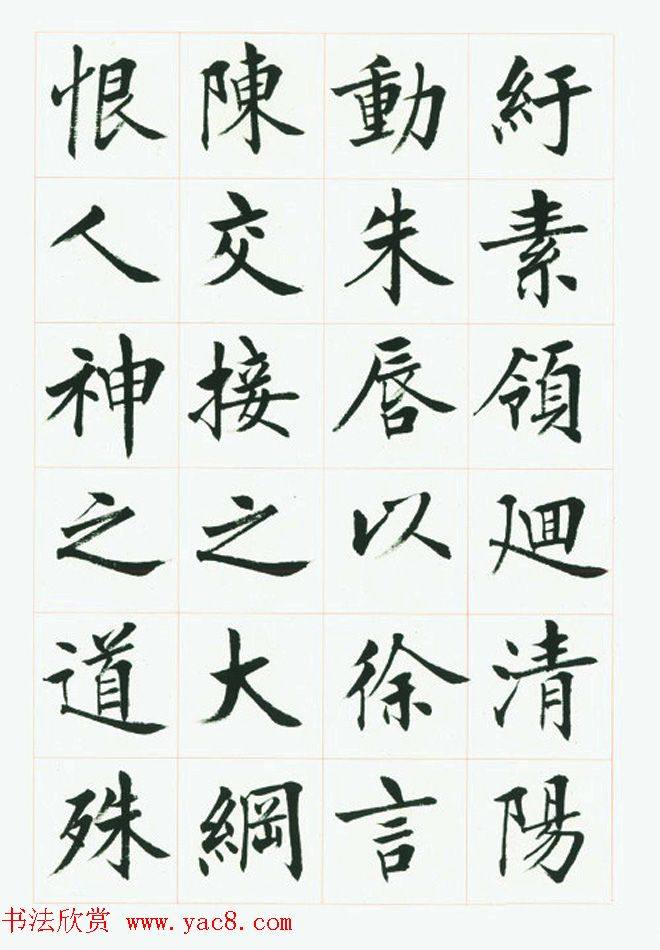 紆素領廻清陽
動朱唇以徐言
陳交接之大綱
恨人神之道殊
书法欣赏 www.yac8.com